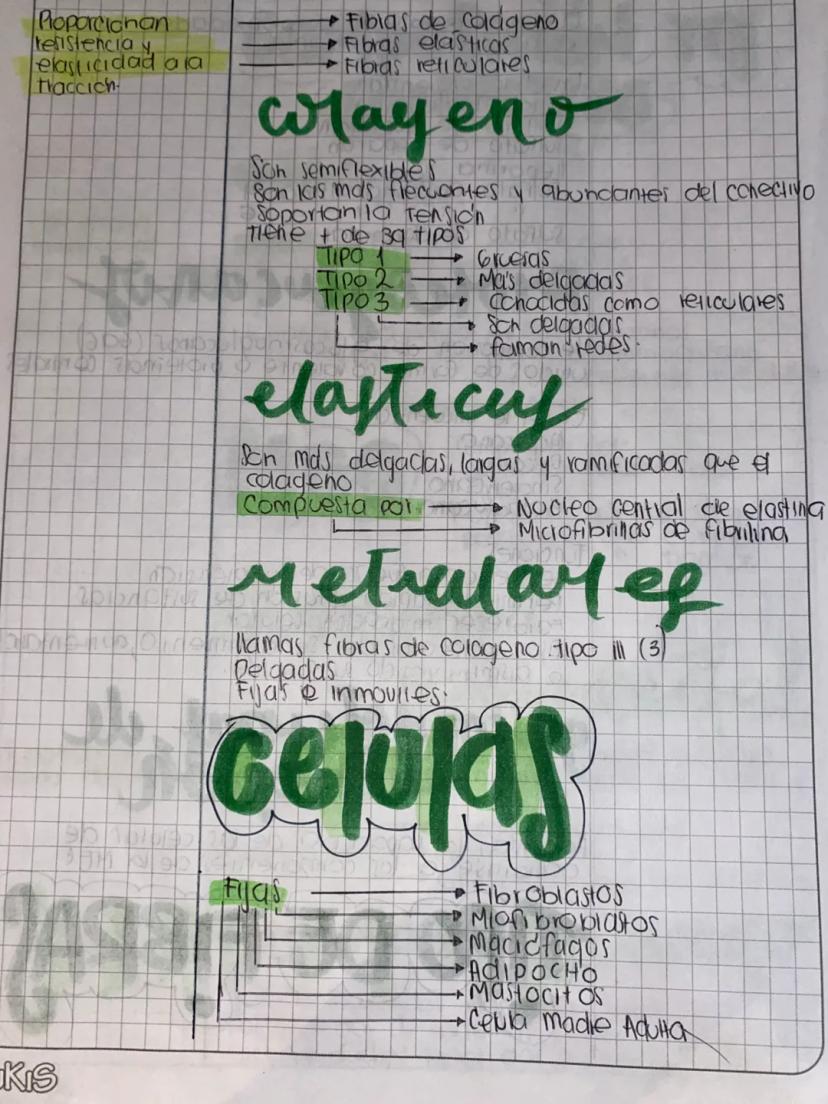 Proporcionan
resistencia y
elasticidad a la
tracción.
→ Fibras de colágeno
→ Fibras elasticas
→ Fibras reticulares
colageno
Son semiflexibles
Son las mas frecuentes y abundantes del conectivo
soportan la tensión
Tiene + de 39 tipos
TIPO 1 → Gruesas
TIPO 2 → Mas delgadas
TIPO 3 → conocidas como reticulares
→ son delgadas
→ forman redes.
elasticas
Son más delgadas, largas y ramificadas que el
colageno
Compuesta por → Nucleo central de elastina
→ Microfibrinas de fibrilina
reticulares
llamas fibras de colageno tipo III (3)
Delgadas
Fijas e inmoviles.
celulas
Fijas → Fibroblastos
→ Miofibroblastos
→ Macrofagos
→ Adipocito
→ Mastocitos
→ Celula madre Adulta
KIS